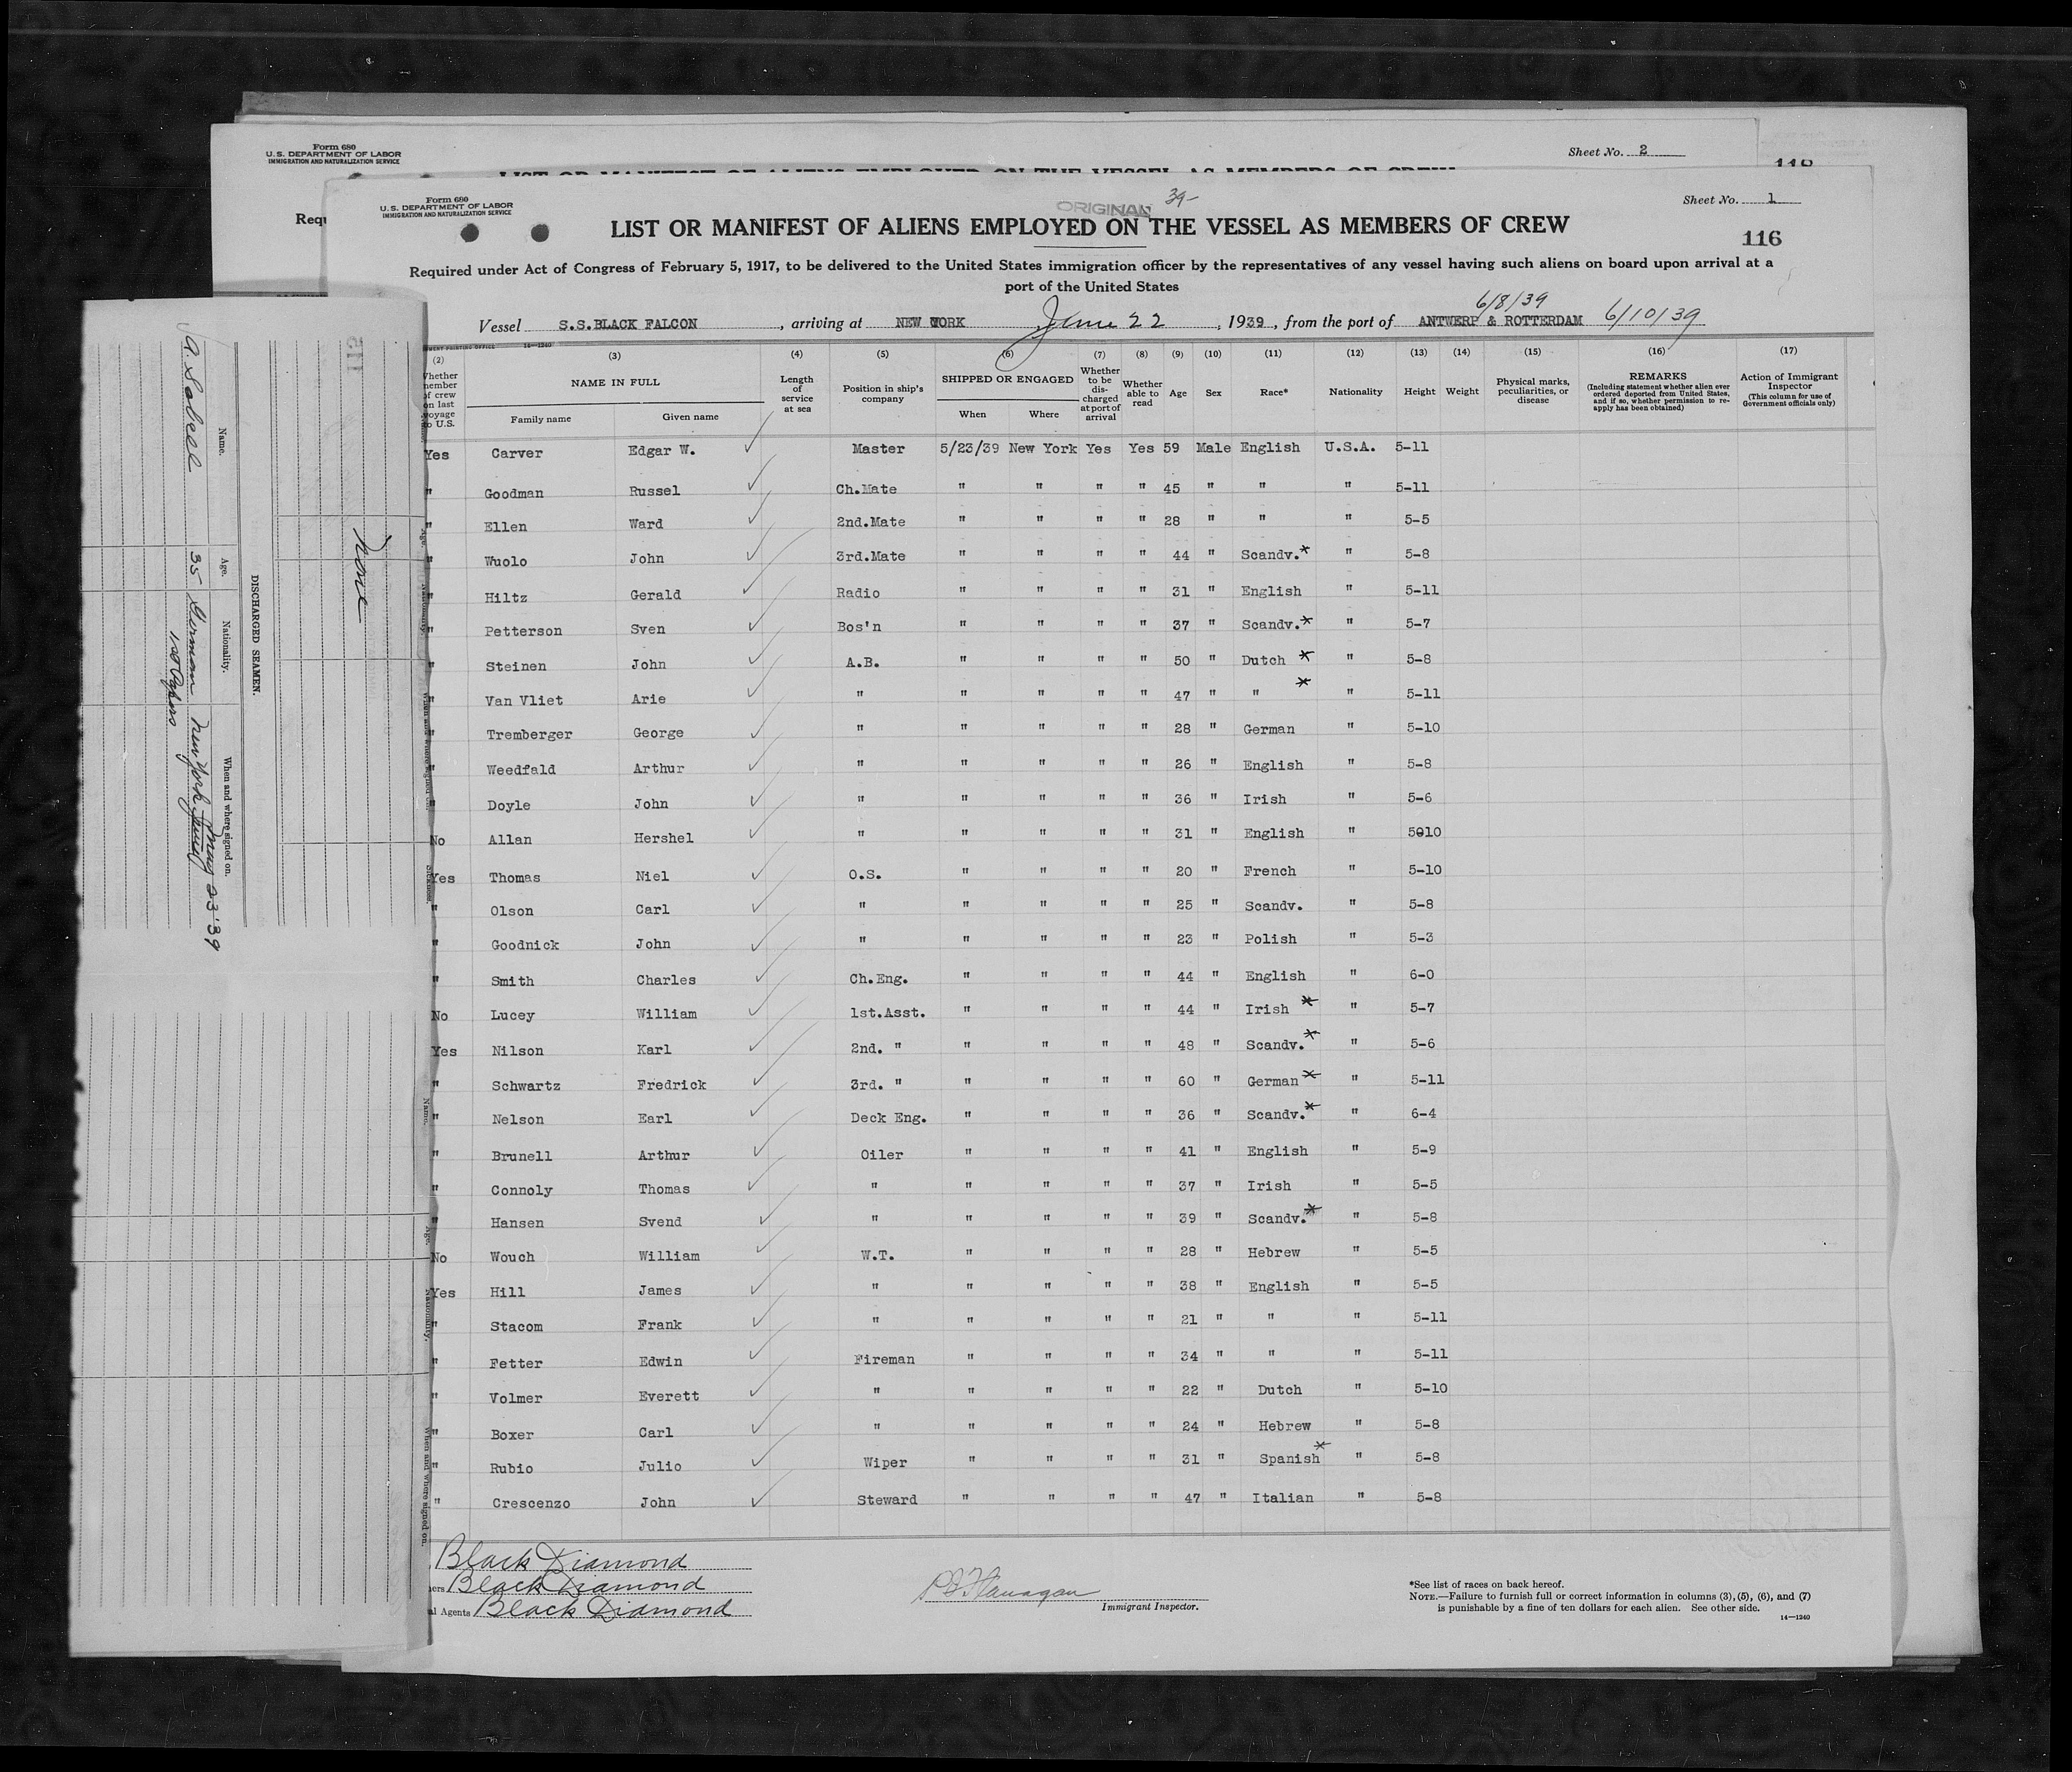 Form 680
U.S. DEPARTMENT OF LABOR
IMMIGRATION AND NATURALIZATION SERVICE
Sheet No. 2
Requ
Form 680
U.S. DEPARTMENT OF LABOR
IMMIGRATION AND NATURALIZATION SERVICE
ORIGINAL
39-
Sheet No. 1
LIST OR MANIFEST OF ALIENS EMPLOYED ON THE VESSEL AS MEMBERS OF CREW
116
Required under Act of Congress of February 5, 1917, to be delivered to the United States immigration officer by the representatives of any vessel having such aliens on board upon arrival at a
port of the United States
6/8/39
Vessel S.S.BLACK FALCON , arriving at NEW YORK June 22 , 1939 , from the port of ANTWERP & ROTTERDAM 6/10/39
14-1240
(2) (3) (4) (5) (6) (7) (8) (9) (10) (11) (12) (13) (14) (15) (16) (17)
Whether member of crew on last voyage to U.S. NAME IN FULL Family name Given name Length of service at sea Position in ship's company SHIPPED OR ENGAGED When Where Whether to be discharged at port of arrival Whether able to read Age Sex Race* Nationality Height Weight Physical marks, peculiarities, or disease REMARKS (Including statement whether alien ever ordered deported from United States, and if so, whether permission to re-apply has been obtained) Action of Immigrant Inspector (This column for use of Government officials only)
Yes Carver Edgar W. Master 5/23/39 New York Yes Yes 59 Male English U.S.A. 5-11
" Goodman Russel Ch.Mate " " " " 45 " " " 5-11
" Ellen Ward 2nd.Mate " " " " 28 " " " 5-5
" Wuolo John 3rd.Mate " " " " 44 " Scandv.* " 5-8
" Hiltz Gerald Radio " " " " 31 " English " 5-11
" Petterson Sven Bos'n " " " " 37 " Scandv.* " 5-7
" Steinen John A.B. " " " " 50 " Dutch * " 5-8
" Van Vliet Arie " " " " " 47 " " * " 5-11
" Tremberger George " " " " " 28 " German " 5-10
" Weedfald Arthur " " " " " 26 " English " 5-8
" Doyle John " " " " " 36 " Irish " 5-6
No Allan Hershel " " " " " 31 " English " 5010
Yes Thomas Niel O.S. " " " " 20 " French " 5-10
" Olson Carl " " " " " 25 " Scandv. " 5-8
" Goodnick John " " " " " 23 " Polish " 5-3
" Smith Charles Ch.Eng. " " " " 44 " English " 6-0
No Lucey William 1st.Asst. " " " " 44 " Irish * " 5-7
Yes Nilson Karl 2nd. " " " " " 48 " Scandv.* " 5-6
" Schwartz Fredrick 3rd. " " " " " 60 " German * " 5-11
" Nelson Earl Deck Eng. " " " " 36 " Scandv.* " 6-4
" Brunell Arthur Oiler " " " " 41 " English " 5-9
" Connoly Thomas " " " " " 37 " Irish " 5-5
" Hansen Svend " " " " " 39 " Scandv.* " 5-8
No Wouch William W.T. " " " " 28 " Hebrew " 5-5
Yes Hill James " " " " " 38 " English " 5-5
" Stacom Frank " " " " " 21 " " " 5-11
" Fetter Edwin Fireman " " " " 34 " " " 5-11
" Volmer Everett " " " " " 22 " Dutch " 5-10
" Boxer Carl " " " " " 24 " Hebrew " 5-8
" Rubio Julio Wiper " " " " 31 " Spanish * " 5-8
" Crescenzo John Steward " " " " 47 " Italian " 5-8
Black Diamond
Black Diamond
l Agents Black Diamond
Immigrant Inspector.
*See list of races on back hereof.
NOTE.—Failure to furnish full or correct information in columns (3), (5), (6), and (7)
is punishable by a fine of ten dollars for each alien. See other side.
14-1240
115
None
DISCHARGED SEAMEN.
Name. Age. Nationality. When and where signed on.
35 German New York May 23 '39
1st Papers